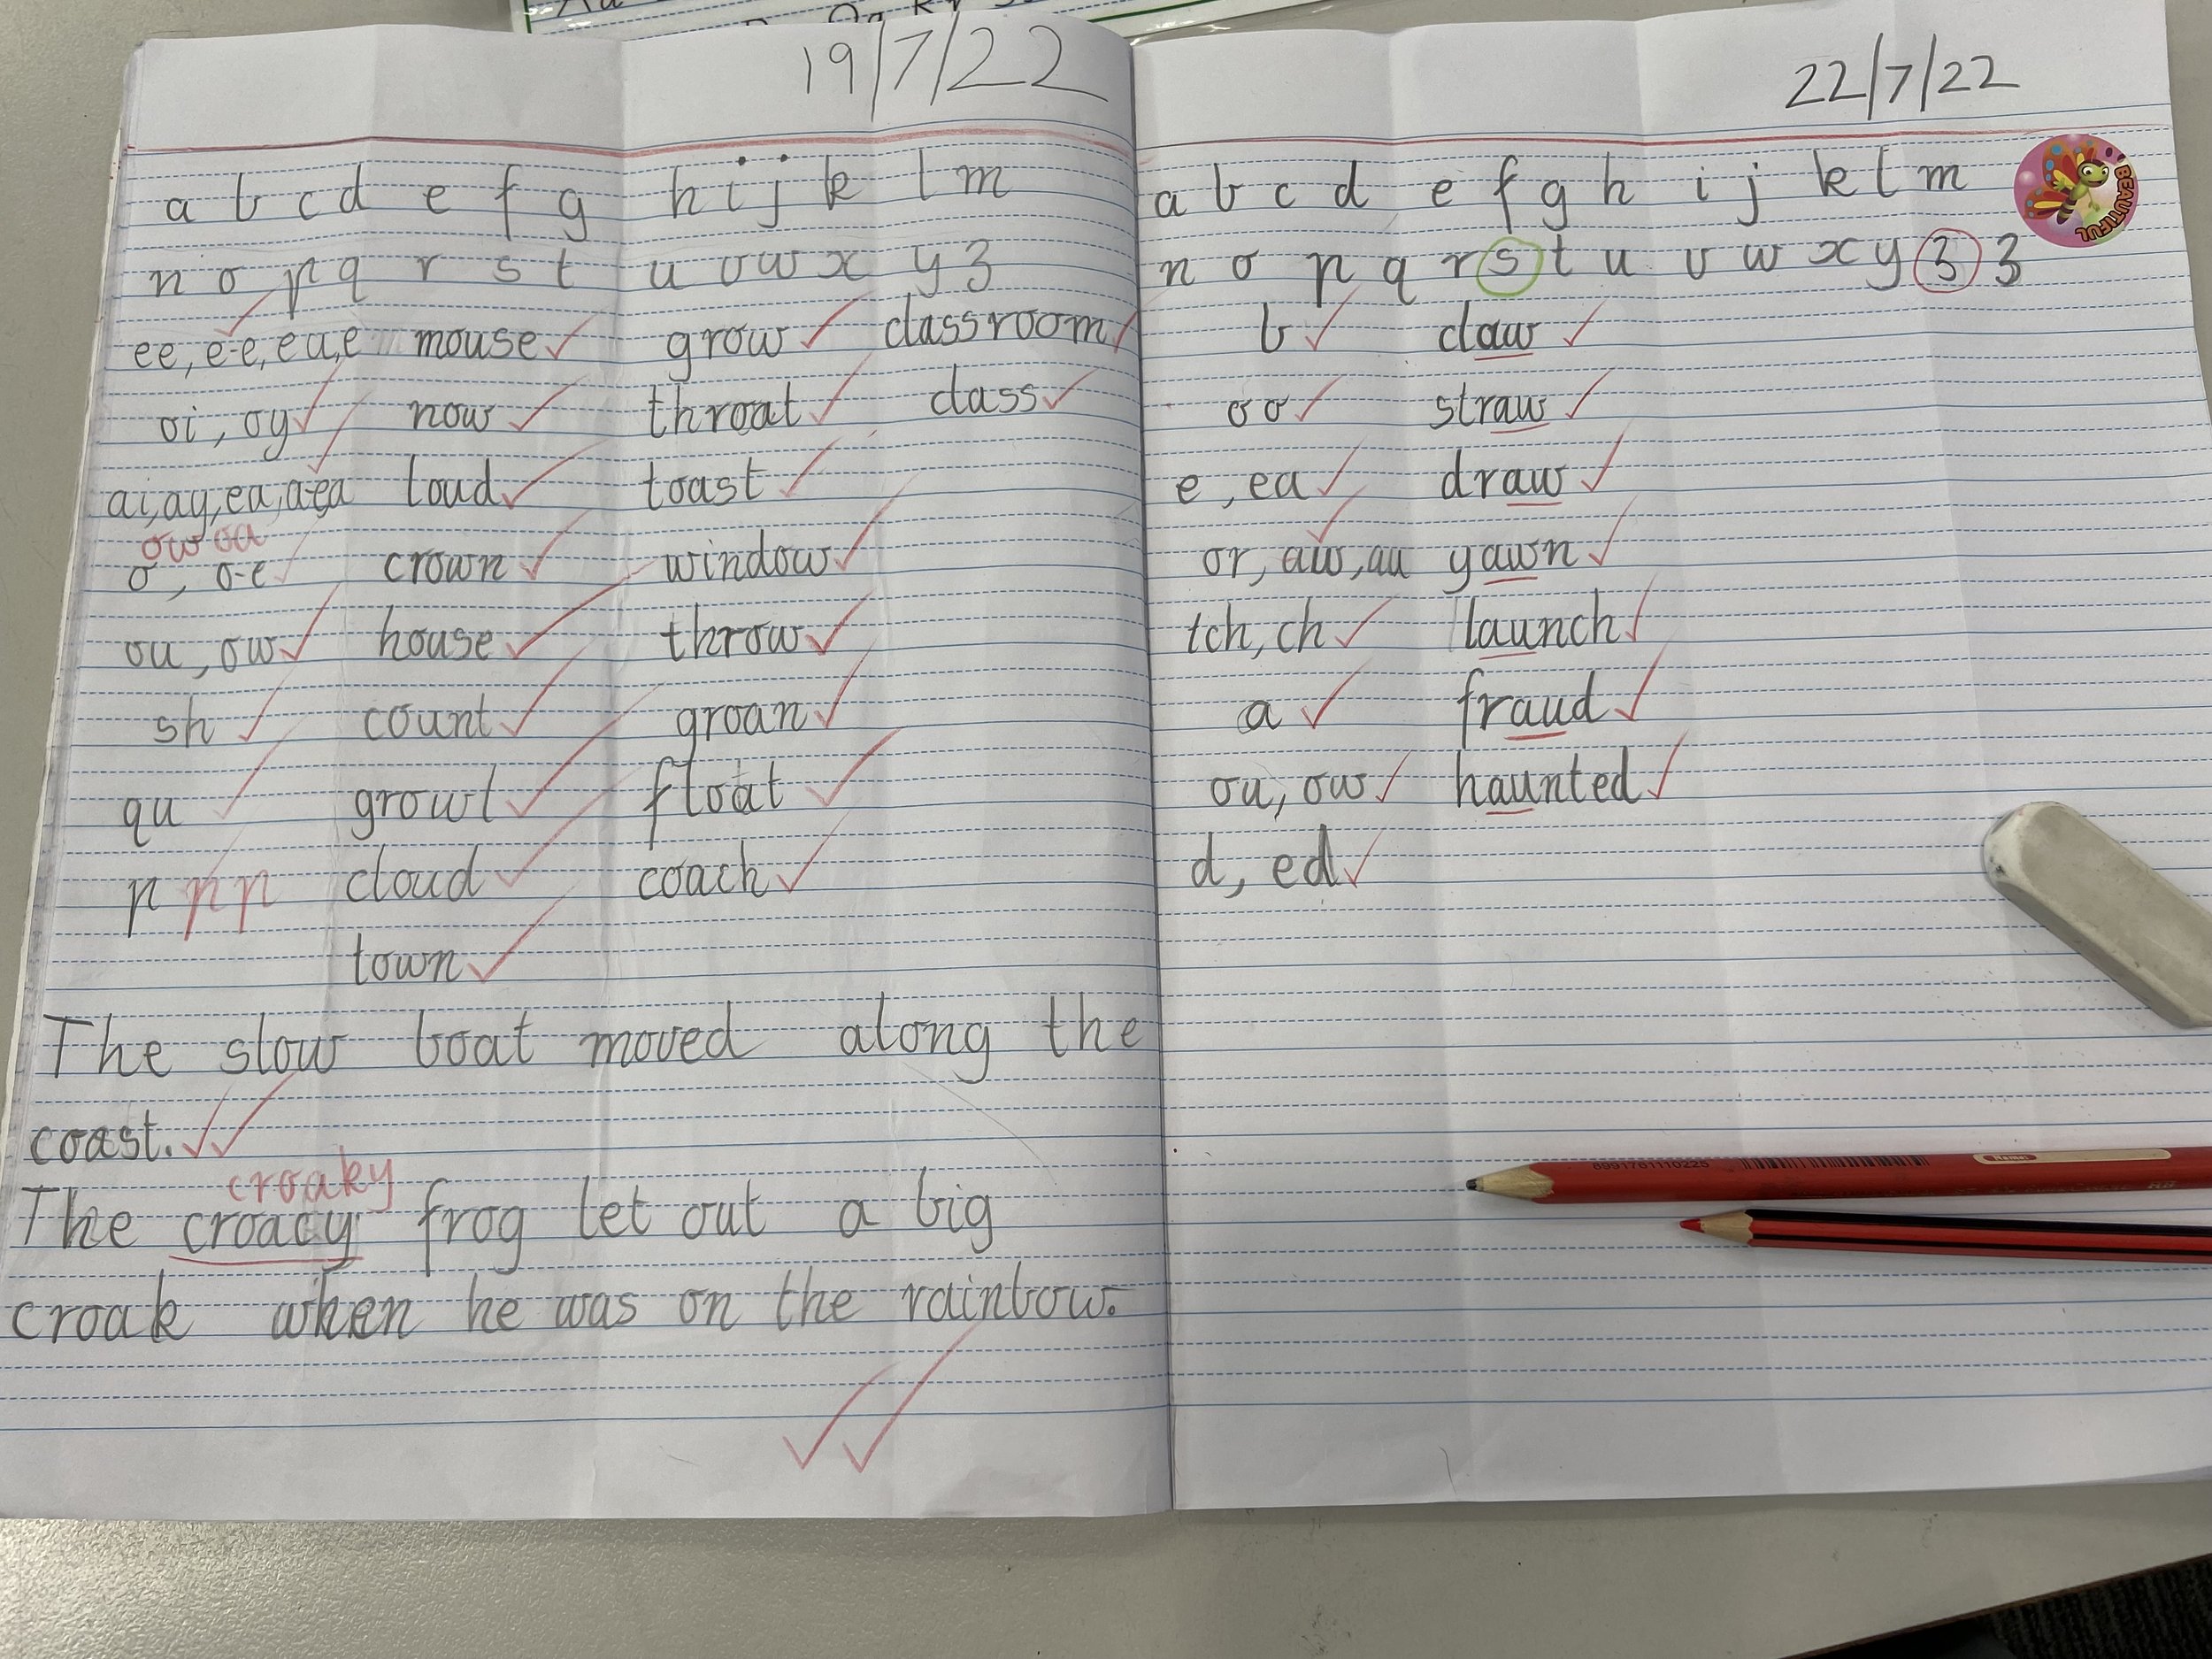 19/7/22
a b c d e f g h i j k l m
n o p q r s t u v w x y z
ee, e-e, ea, e mouse grow classroom
oi, oy now throat class
ai, ay, ea, a-e, a loud toast
ow oa
o, o-e crown window
ou, ow house throw
sh count groan
qu growl float
p p p cloud coach
town
The slow boat moved along the
coast.
croaky
The croacy frog let out a big
croak when he was on the rainbow.
22/7/22
a b c d e f g h i j k l m
n o p q r s t u v w x y z z
BEAUTIFUL
b claw
oo straw
e, ea draw
or, aw, au yawn
tch, ch launch
a fraud
ou, ow haunted
d, ed
8991761110225
Name: